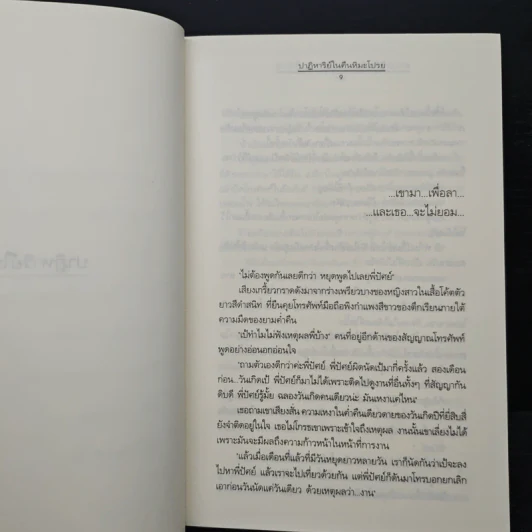 ปาฏิหาริย์ในคืนหิมะโปรย
...เขามา...เพื่อลา...
...และเธอ...จะไม่ยอม...
"ไม่ต้องพูดกันเลยดีกว่า หยุดพูดไปเลยพี่ปัศย์"
เสียงเกรี้ยวกราดดังมาจากร่างเพรียวบางของหญิงสาวในเสื้อโค้ตตัว
ยาวสีดำสนิท ที่ยืนคุยโทรศัพท์มือถือพิงกำแพงสีขาวของตึกเรียนภายใต้
ความมืดของยามค่ำคืน
"เป้ทำไมไม่ฟังเหตุผลพี่บ้าง" คนที่อยู่อีกด้านของสัญญาณโทรศัพท์
พูดอย่างอ่อนอกอ่อนใจ
"ถามตัวเองดีกว่าค่ะพี่ปัศย์ พี่ปัศย์ผิดนัดเป้มากี่ครั้งแล้ว สองเดือน
ก่อน...วันเกิดเป้ พี่ปัศย์ก็มาไม่ได้เพราะติดไปดูงานที่อื่นทั้งๆ ที่สัญญากัน
ดิบดี พี่ปัศย์รู้มั้ย ฉลองวันเกิดคนเดียวน่ะ มันเหงาแค่ไหน"
เธอถามเขาเสียงสั่น ความเหงาในค่ำคืนเดียวดายของวันเกิดปีที่ยี่สิบสี่
ยังจำติดอยู่ในใจ เธอไม่โกรธเขาเพราะเข้าใจถึงเหตุผล งานนั้นเขาเลี่ยงไม่ได้
เพราะมันจะมีผลถึงความก้าวหน้าในหน้าที่การงาน
"แล้วเมื่อเดือนที่แล้วที่มีวันหยุดยาวหลายวัน เราก็นัดกันว่าเป้จะลง
ไปหาพี่ปัศย์ แล้วเราจะไปเที่ยวด้วยกัน แต่พี่ปัศย์ก็ดันมาโทรบอกยกเลิก
เอาก่อนวันนัดแค่วันเดียว ด้วยเหตุผลว่า...งาน"